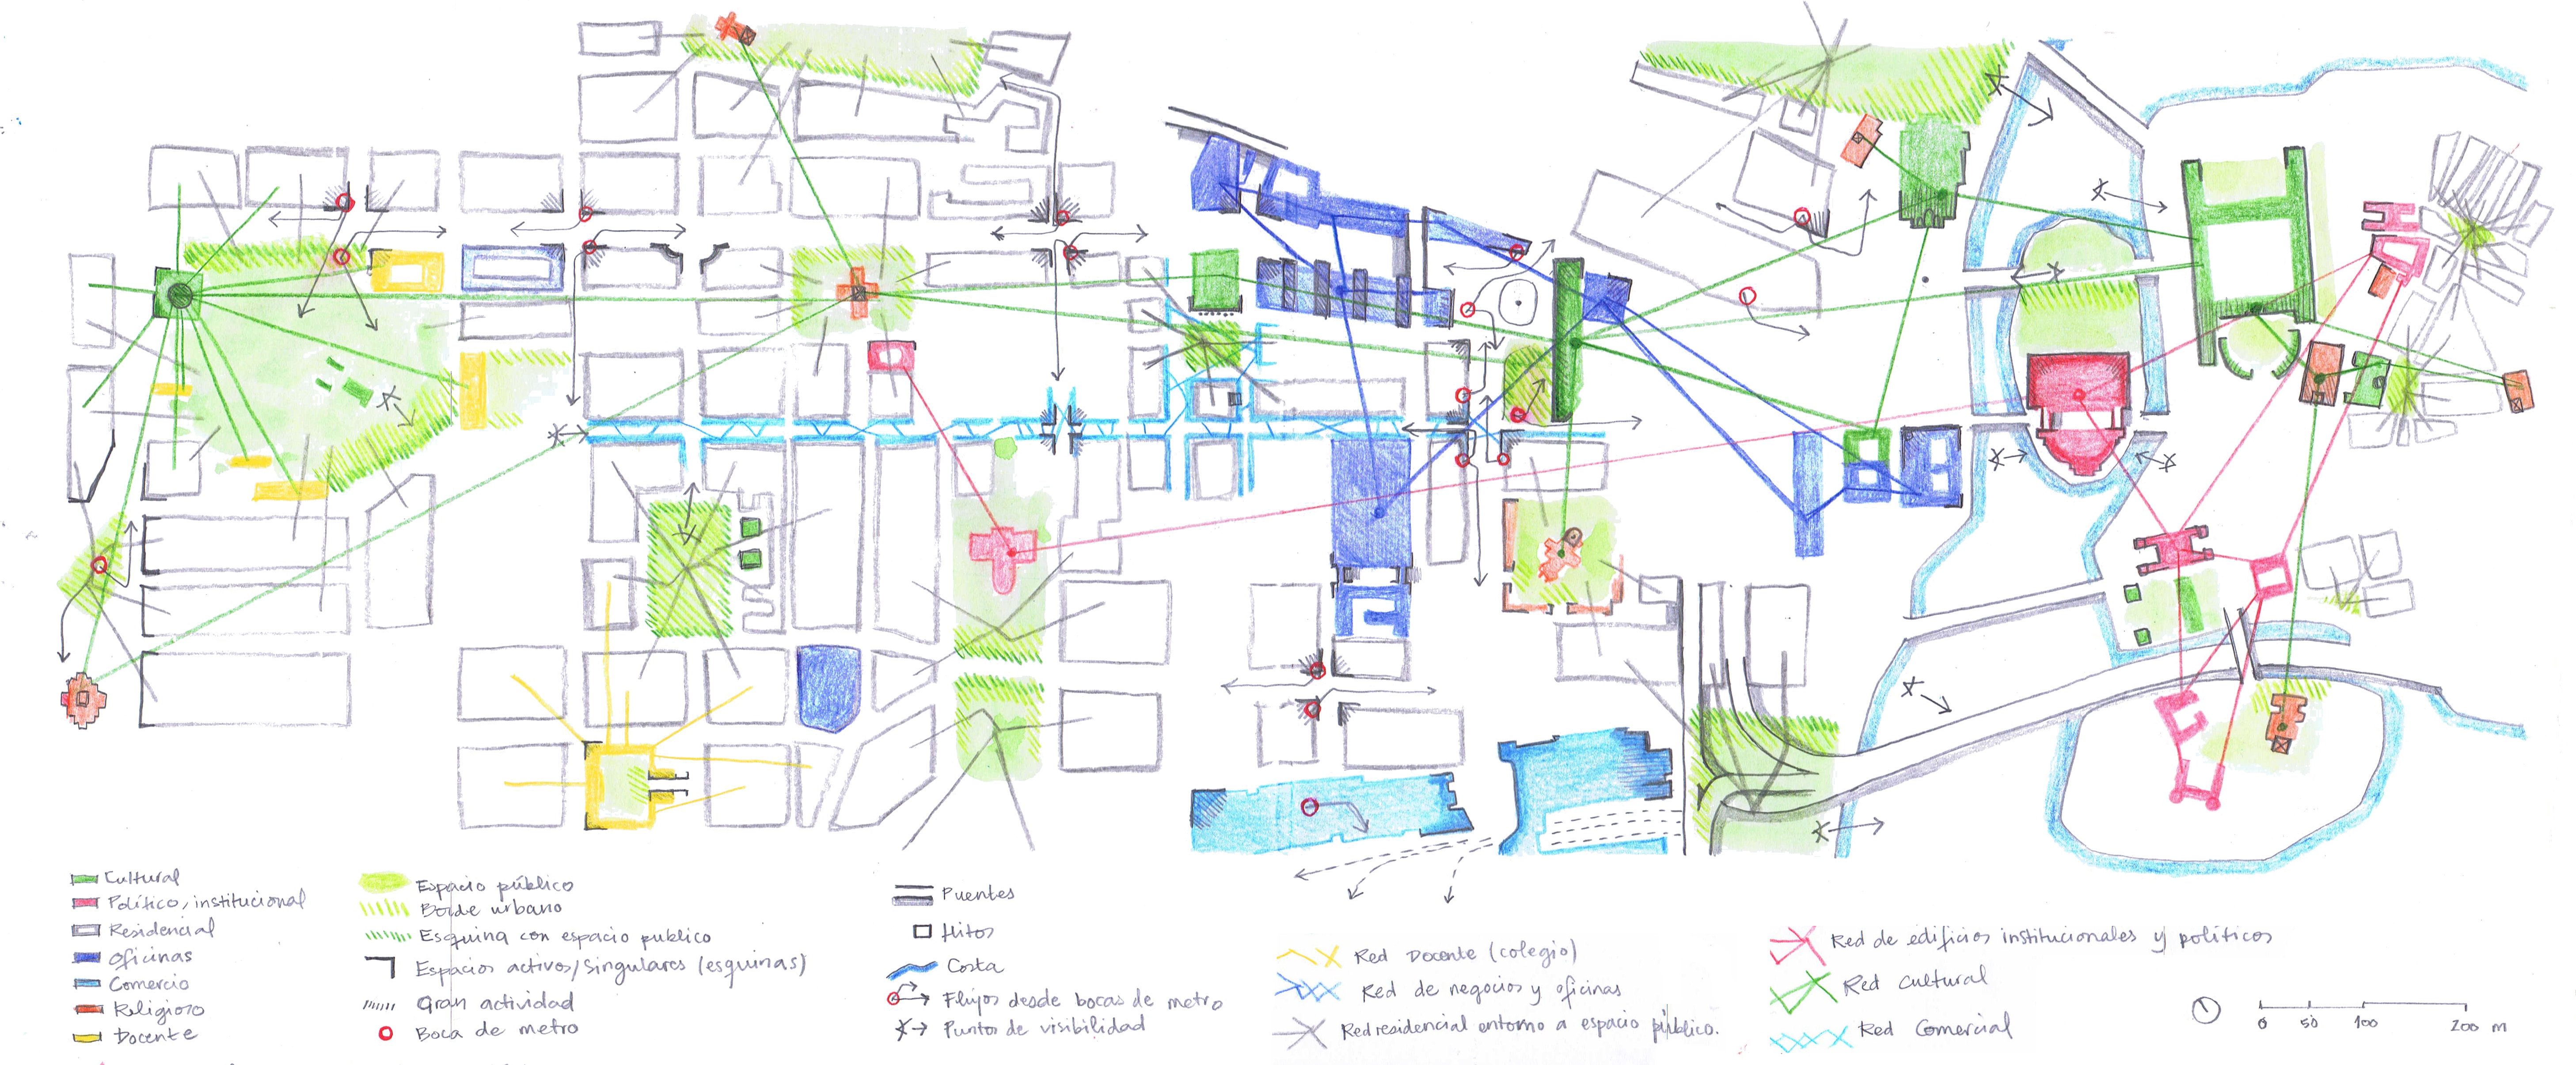 Cultural
Político, institucional
Residencial
Oficinas
Comercio
Religioso
Docente
Espacio público
Borde urbano
Esquina con espacio publico
Espacios activos/Singulares (esquinas)
Gran actividad
Boca de metro
Puentes
Hitos
Costa
Flujos desde bocas de metro
Puntos de visibilidad
Red Docente (colegio)
Red de negocios y oficinas
Red residencial entorno a espacio público.
Red de edificios institucionales y políticos
Red Cultural
Red Comercial
0 50 100 200 m